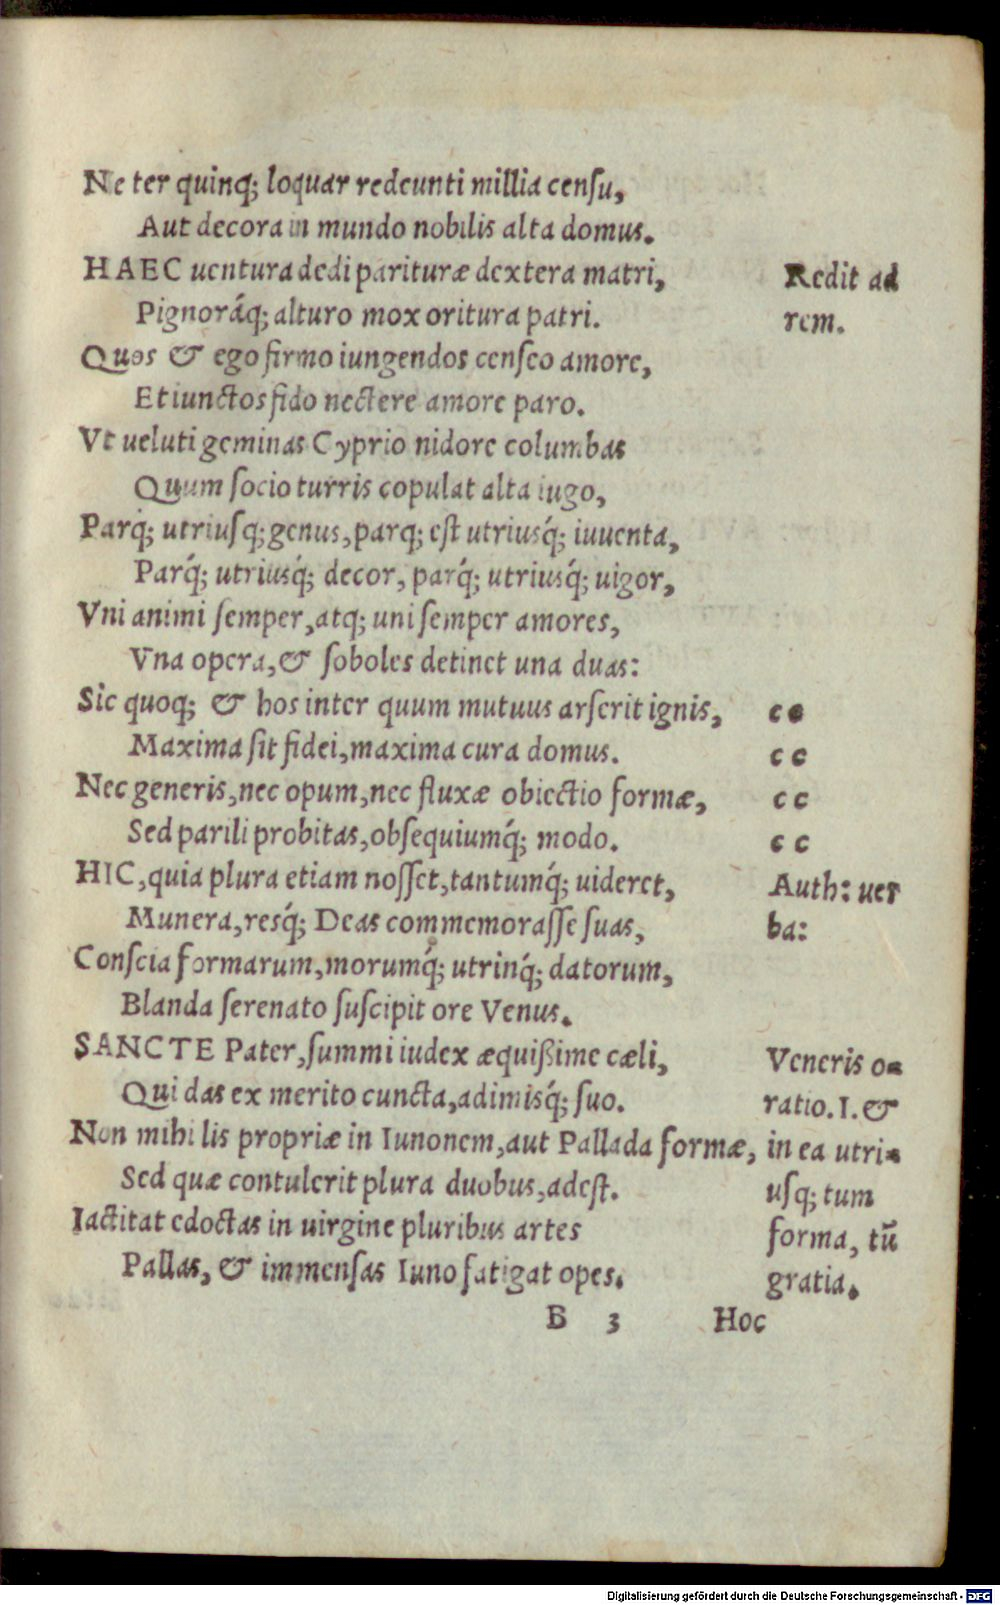 Ne ter quinq; loquar redeunti millia censu,
Aut decora in mundo nobilis alta domus.
HAEC uentura dedi parituræ dextera matri,
Pignoráq; alturo mox oritura patri.
Quos & ego firmo iungendos censeo amore,
Et iunctos fido nectere amore paro.
Vt ueluti geminas Cyprio nidore columbas
Quum socio turris copulat alta iugo,
Parq́; utriusq; genus, parq; est utriusq́; iuuenta,
Parq́; utriusq́; decor, parq́; utriusq́; uigor,
Vni animi semper, atq; uni semper amores,
Vna opera, & soboles detinet una duas:
Sic quoq; & hos inter quum mutuus arserit ignis,
Maxima sit fidei, maxima cura domus.
Nec generis, nec opum, nec fluxæ obiectio formæ,
Sed parili probitas, obsequiumq́; modo.
HIC, quia plura etiam nosset, tantumq́; uideret,
Munera, resq́; Deas commemorasse suas,
Conscia formarum, morumq́; utrinq́; datorum,
Blanda serenato suscipit ore Venus.
SANCTE Pater, summi iudex æquißime cæli,
Qui das ex merito cuncta, adimisq́; suo.
Non mihi lis propriæ in Iunonem, aut Pallada formæ,
Sed quæ contulerit plura duobus, adest.
Iactitat edoctas in uirgine pluribus artes
Pallas, & immensas Iuno fatigat opes.
B 3
Hoc
Redit ad
rem.
c c
c c
c c
c c
Auth: uer
ba:
Veneris o-
ratio. I. &
in ea utri-
usq; tum
forma, tū
gratia.
Digitalisierung gefördert durch die Deutsche Forschungsgemeinschaft - DFG